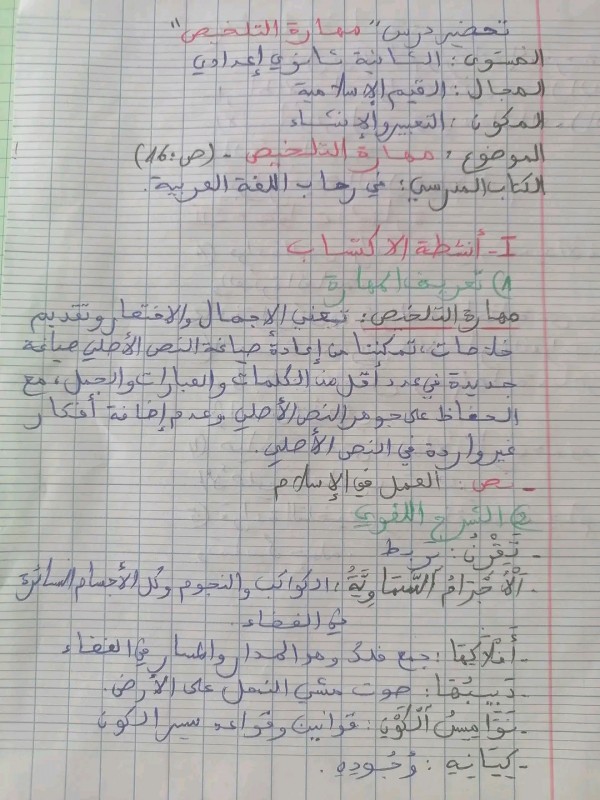 تحضير درس "مهارة التلخيص"
المستوى: الثانية ثانوي إعدادي
المجال: القيم الإسلامية
المكون: التعبير والإنشاء
الموضوع: مهارة التلخيص - (ص:16)
الكتاب المدرسي: في رحاب اللغة العربية.
I- أنشطة الاكتساب
1) تعريف المهارة
مهارة التلخيص: تعني الإجمال والاختصار وتقديم
خلاصات، تمكننا من إعادة صياغة النص الأصلي صياغة
جديدة في عدد أقل من الكلمات والعبارات والجمل، مع
الحفاظ على جوهر النص الأصلي وعدم إضافة أفكار
غير واردة في النص الأصلي.
- نص: العمل في الإسلام
2) الشرح اللغوي
- يَقْرِنُ: يربط
- الْأَجْرَامُ السَّمَاوِيَّةُ: الكواكب والنجوم وكل الأجسام السائرة
في الفضاء.
- أَفْلَاكِهَا: جمع فلك وهو المدار والمسار في الفضاء
- دَبِيبُهَا: صوت مشي النمل على الأرض.
- نَوَامِيسُ الْكَوْنِ: قوانين وقواعد سير الكون
- كِيَانِهِ: وُجُودِهِ.